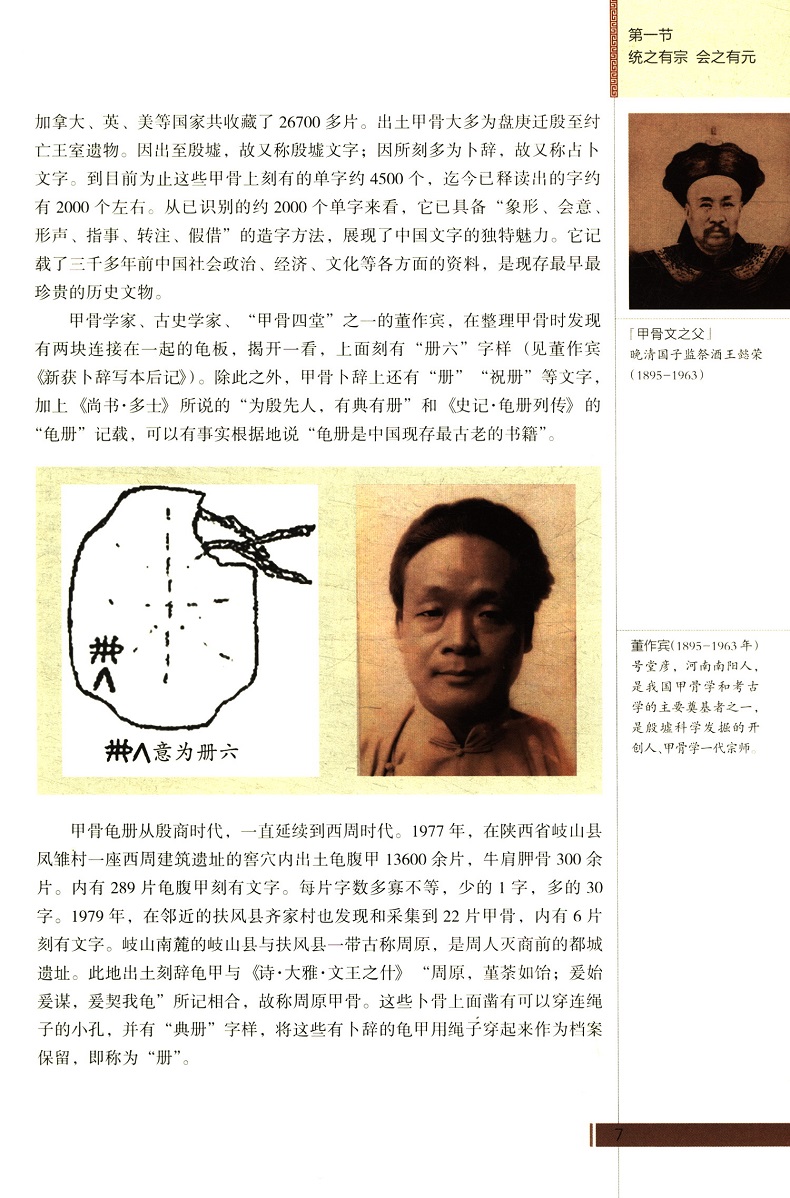 第一节
统之有宗 会之有元
加拿大、英、美等国家共收藏了 26700 多片。出土甲骨大多为盘庚迁殷至纣
亡王室遗物。因出至殷墟，故又称殷墟文字；因所刻多为卜辞，故又称占卜
文字。到目前为止这些甲骨上刻有的单字约 4500 个，迄今已释读出的字约
有 2000 个左右。从已识别的约 2000 个单字来看，它已具备“象形、会意、
形声、指事、转注、假借”的造字方法，展现了中国文字的独特魅力。它记
载了三千多年前中国社会政治、经济、文化等各方面的资料，是现存最早最
珍贵的历史文物。
甲骨学家、古史学家、“甲骨四堂”之一的董作宾，在整理甲骨时发现
有两块连接在一起的龟板，揭开一看，上面刻有“册六”字样（见董作宾
《新获卜辞写本后记》）。除此之外，甲骨卜辞上还有“册”“祝册”等文字，
加上《尚书·多士》所说的“为殷先人，有典有册”和《史记·龟册列传》的
“龟册”记载，可以有事实根据地说“龟册是中国现存最古老的书籍”。
「甲骨文之父」
晚清国子监祭酒王懿荣
(1895-1963)
意为册六
董作宾(1895-1963 年)
号堂彦，河南南阳人，
是我国甲骨学和考古
学的主要奠基者之一，
是殷墟科学发掘的开
创人、甲骨学一代宗师。
甲骨龟册从殷商时代，一直延续到西周时代。1977 年，在陕西省岐山县
凤雏村一座西周建筑遗址的窖穴内出土龟腹甲 13600 余片，牛肩胛骨 300 余
片。内有 289 片龟腹甲刻有文字。每片字数多寡不等，少的 1 字，多的 30
字。1979 年，在邻近的扶风县齐家村也发现和采集到 22 片甲骨，内有 6 片
刻有文字。岐山南麓的岐山县与扶风县一带古称周原，是周人灭商前的都城
遗址。此地出土刻辞龟甲与《诗·大雅·文王之什》“周原，堇荼如饴；爰始
爰谋，爰契我龟”所记相合，故称周原甲骨。这些卜骨上面凿有可以穿连绳
子的小孔，并有“典册”字样，将这些有卜辞的龟甲用绳子穿起来作为档案
保留，即称为“册”。
7